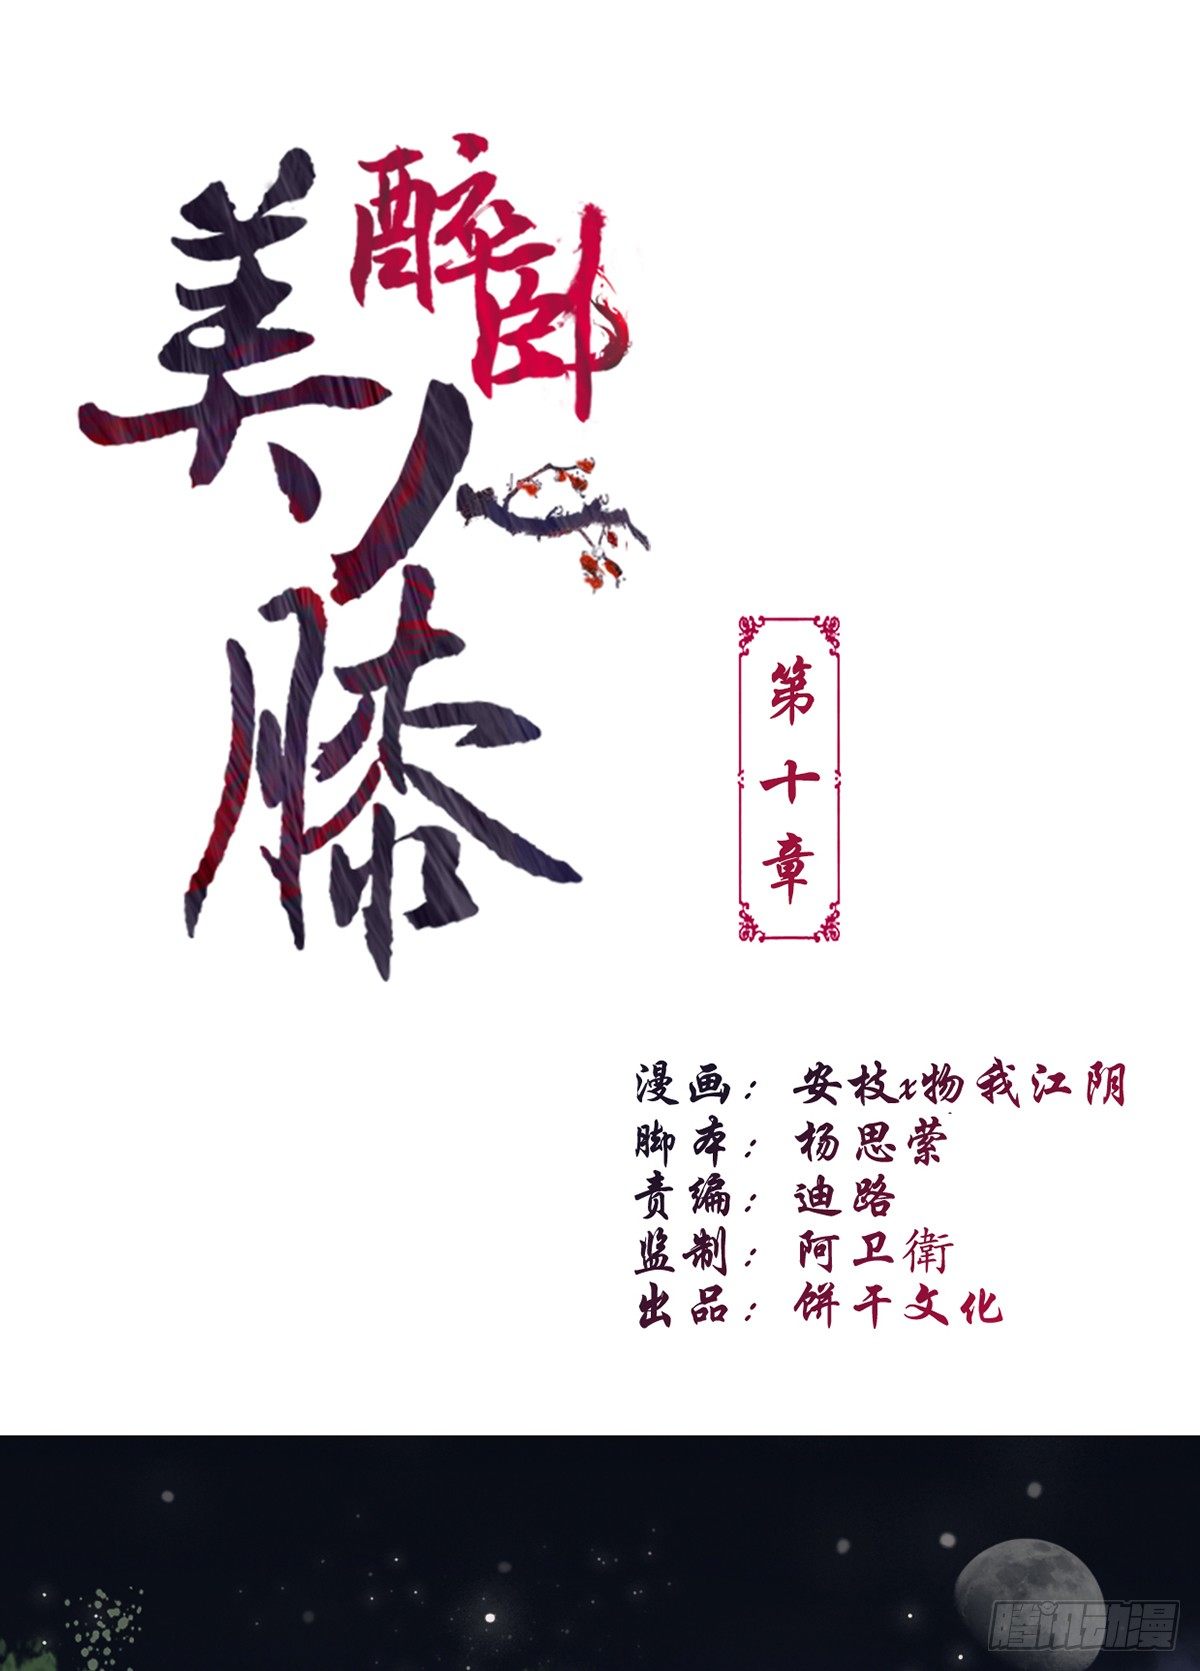 醉卧
美人
膝
第十章
漫画：安枝x物我江阴
脚本：杨思萦
责编：迪路
监制：阿卫衛
出品：饼干文化
腾讯动漫